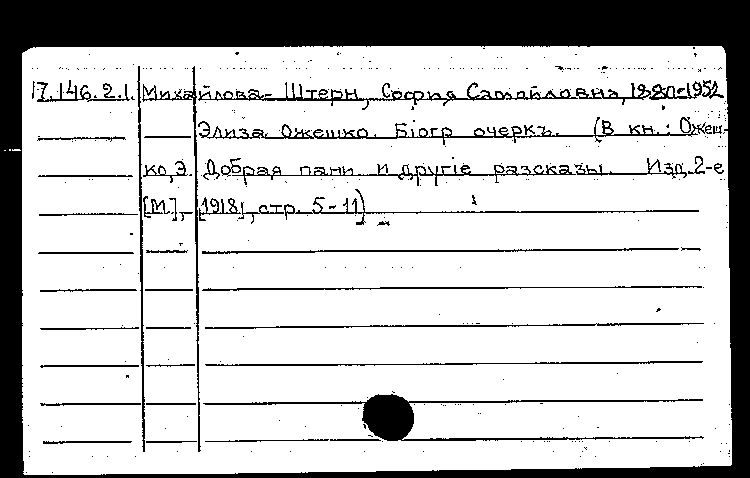 17.146.2.1. Михайлова-Штерн, София Самойловна, 1880-1952
Элиза Ожешко. Бiогр очеркъ. (В кн.: Ожеш-
ко, Э. Добрая пани и другiе разсказы. Изд. 2-е
[М.], [1918], стр. 5-11)